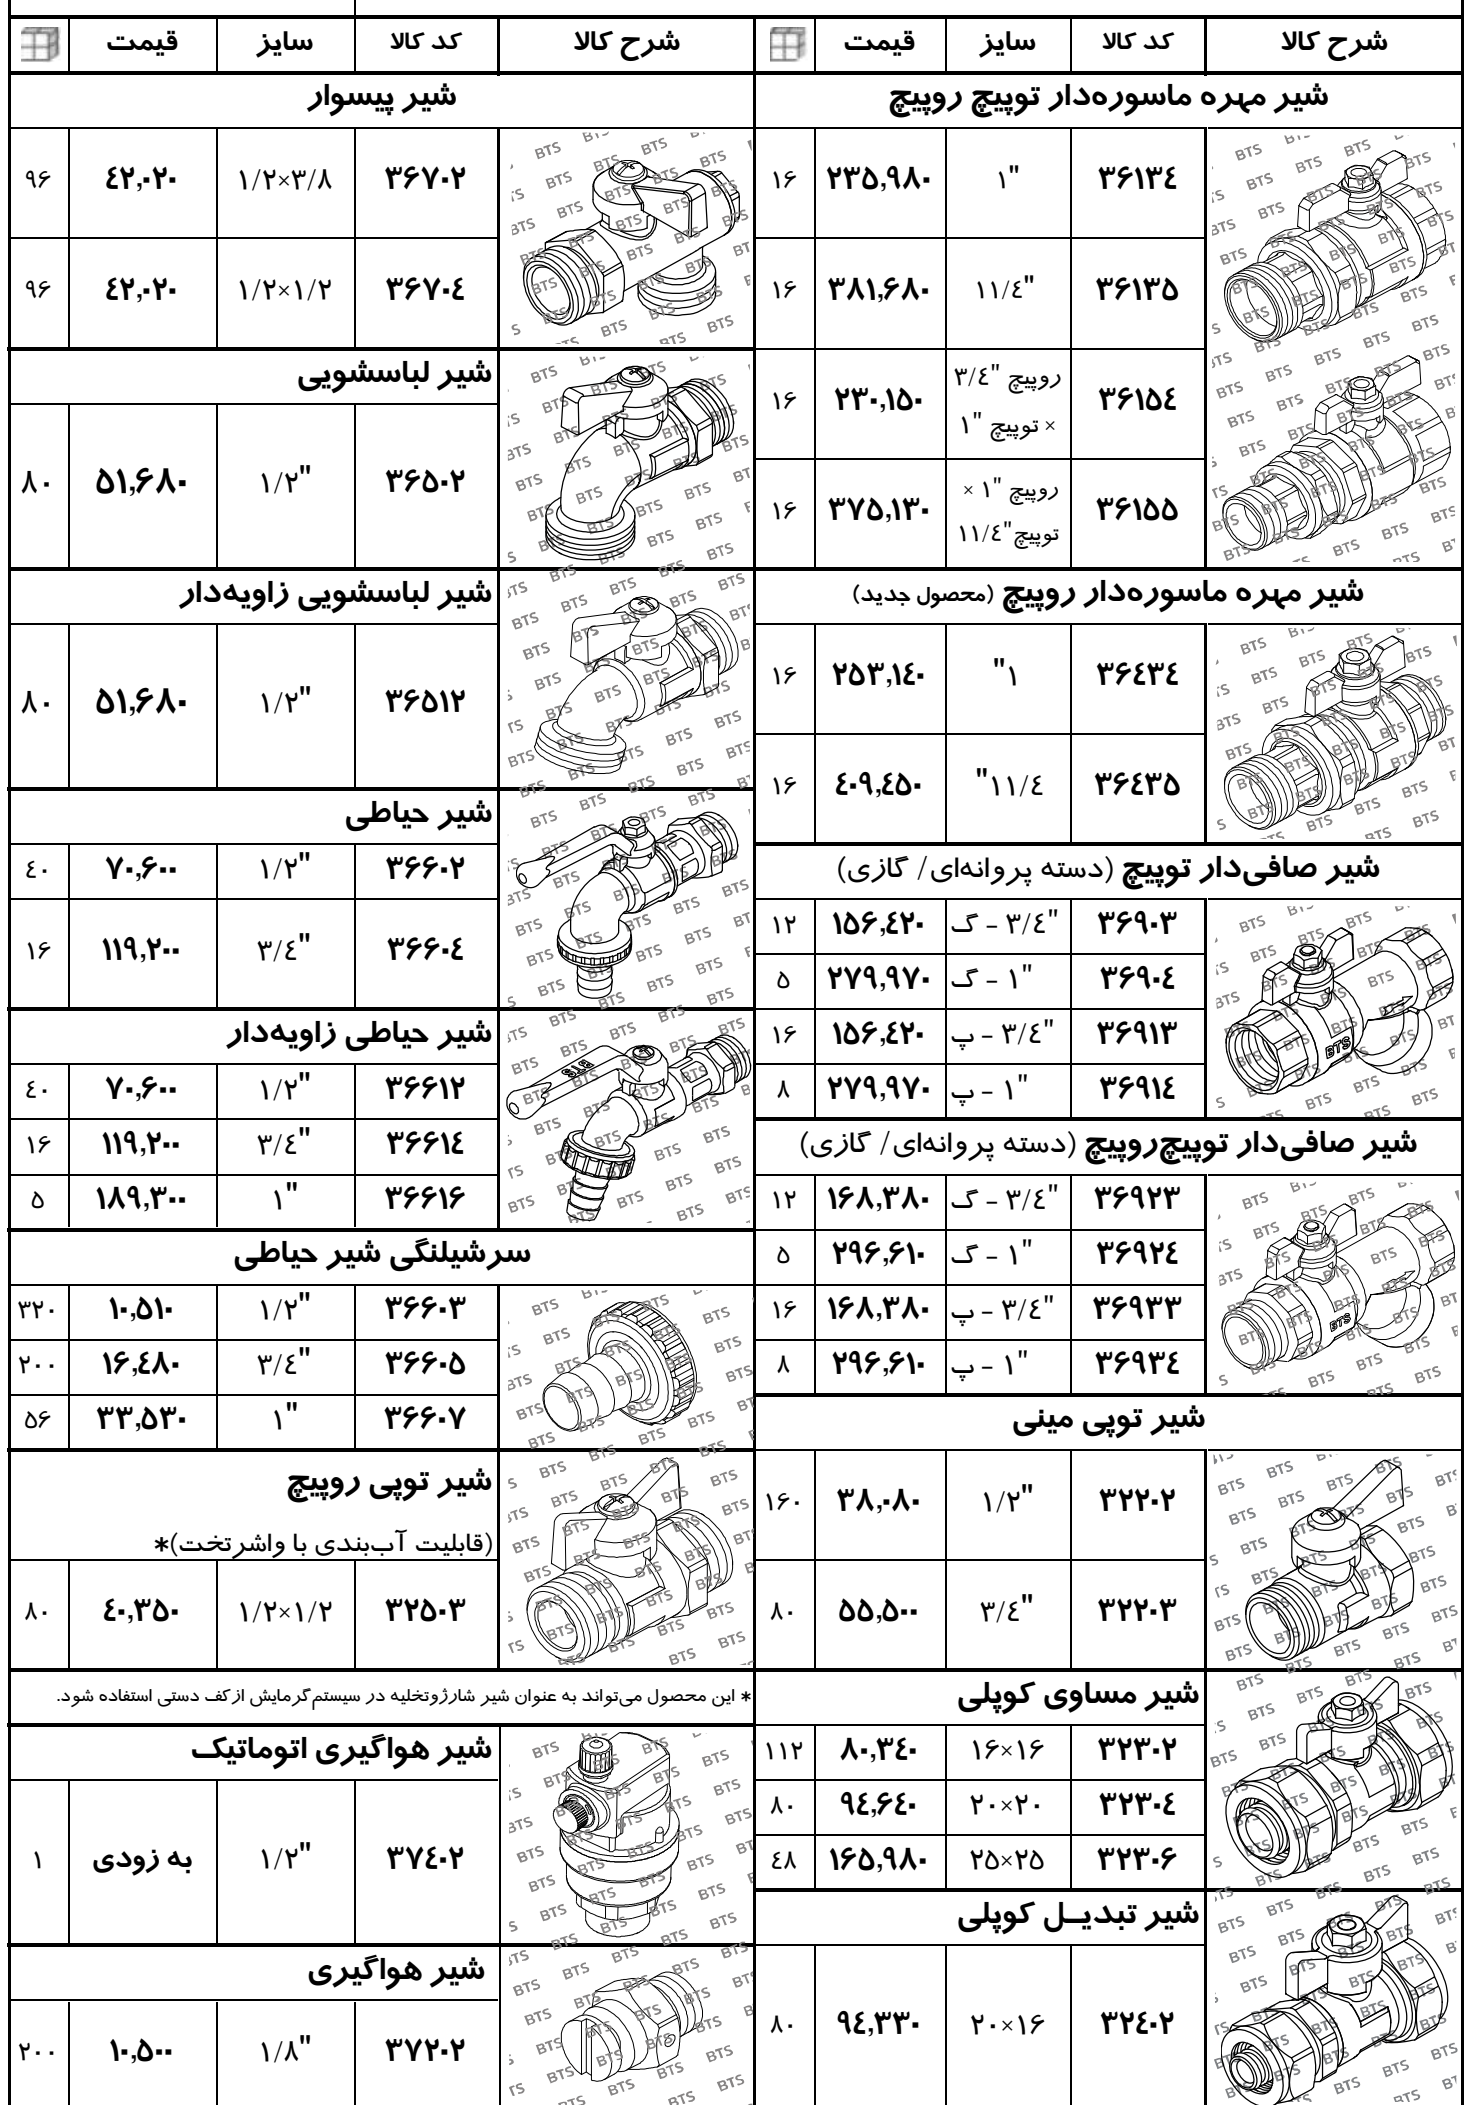 شرح کالا کد کالا سایز قیمت
شیر مهره ماسوره‌دار توپیچ روپیچ
۳۶۱۳٤ ۱" ۲۳۵,۹۸۰ ۱۶
۳۶۱۳۵ ۱۱/٤" ۳۸۱,۶۸۰ ۱۶
۳۶۱۵٤ روپیچ "۳/٤ × توپیچ "۱ ۲۳۰,۱۵۰ ۱۶
۳۶۱۵۵ روپیچ "۱ × توپیچ"۱۱/٤ ۳۷۵,۱۳۰ ۱۶
شیر مهره ماسوره‌دار روپیچ (محصول جدید)
۳۶٤۳٤ ۱" ۲۵۳,۱٤۰ ۱۶
۳۶٤۳۵ ۱۱/٤" ٤۰۹,٤۵۰ ۱۶
شیر صافی‌دار توپیچ (دسته پروانه‌ای/ گازی)
۳۶۹۰۳ ۳/٤" - گ ۱۵۶,٤۲۰ ۱۲
۳۶۹۰٤ ۱" - گ ۲۷۹,۹۷۰ ۵
۳۶۹۱۳ ۳/٤" - پ ۱۵۶,٤۲۰ ۱۶
۳۶۹۱٤ ۱" - پ ۲۷۹,۹۷۰ ۸
شیر صافی‌دار توپیچ‌روپیچ (دسته پروانه‌ای/ گازی)
۳۶۹۲۳ ۳/٤" - گ ۱۶۸,۳۸۰ ۱۲
۳۶۹۲٤ ۱" - گ ۲۹۶,۶۱۰ ۵
۳۶۹۳۳ ۳/٤" - پ ۱۶۸,۳۸۰ ۱۶
۳۶۹۳٤ ۱" - پ ۲۹۶,۶۱۰ ۸
شیر توپی مینی
۳۲۲۰۲ ۱/۲" ۳۸,۰۸۰ ۱۶۰
۳۲۲۰۳ ۳/٤" ۵۵,۵۰۰ ۸۰
شیر مساوی کوپلی
۳۲۳۰۲ ۱۶×۱۶ ۸۰,۳٤۰ ۱۱۲
۳۲۳۰٤ ۲۰×۲۰ ۹٤,۶٤۰ ۸۰
۳۲۳۰۶ ۲۵×۲۵ ۱۶۵,۹۸۰ ٤۸
شیر تبدیـل کوپلی
۳۲٤۰۲ ۲۰×۱۶ ۹٤,۳۳۰ ۸۰
شرح کالا کد کالا سایز قیمت
شیر پیسوار
۳۶۷۰۲ ۱/۲×۳/۸ ٤۲,۰۲۰ ۹۶
۳۶۷۰٤ ۱/۲×۱/۲ ٤۲,۰۲۰ ۹۶
شیر لباسشویی
۳۶۵۰۲ ۱/۲" ۵۱,۶۸۰ ۸۰
شیر لباسشویی زاویه‌دار
۳۶۵۱۲ ۱/۲" ۵۱,۶۸۰ ۸۰
شیر حیاطی
۳۶۶۰۲ ۱/۲" ۷۰,۶۰۰ ٤۰
۳۶۶۰٤ ۳/٤" ۱۱۹,۲۰۰ ۱۶
شیر حیاطی زاویه‌دار
۳۶۶۱۲ ۱/۲" ۷۰,۶۰۰ ٤۰
۳۶۶۱٤ ۳/٤" ۱۱۹,۲۰۰ ۱۶
۳۶۶۱۶ ۱" ۱۸۹,۳۰۰ ۵
سرشیلنگی شیر حیاطی
۳۶۶۰۳ ۱/۲" ۱۰,۵۱۰ ۳۲۰
۳۶۶۰۵ ۳/٤" ۱۶,٤۸۰ ۲۰۰
۳۶۶۰۷ ۱" ۳۳,۵۳۰ ۵۶
شیر توپی روپیچ
(قابلیت آب‌بندی با واشرتخت)*
۳۲۵۰۳ ۱/۲×۱/۲ ٤۰,۳۵۰ ۸۰
* این محصول می‌تواند به عنوان شیر شارژوتخلیه در سیستم گرمایش ازکف دستی استفاده شود.
شیر هواگیری اتوماتیک
۳۷٤۰۲ ۱/۲" به زودی ۱
شیر هواگیری
۳۷۲۰۲ ۱/۸" ۱۰,۵۰۰ ۲۰۰